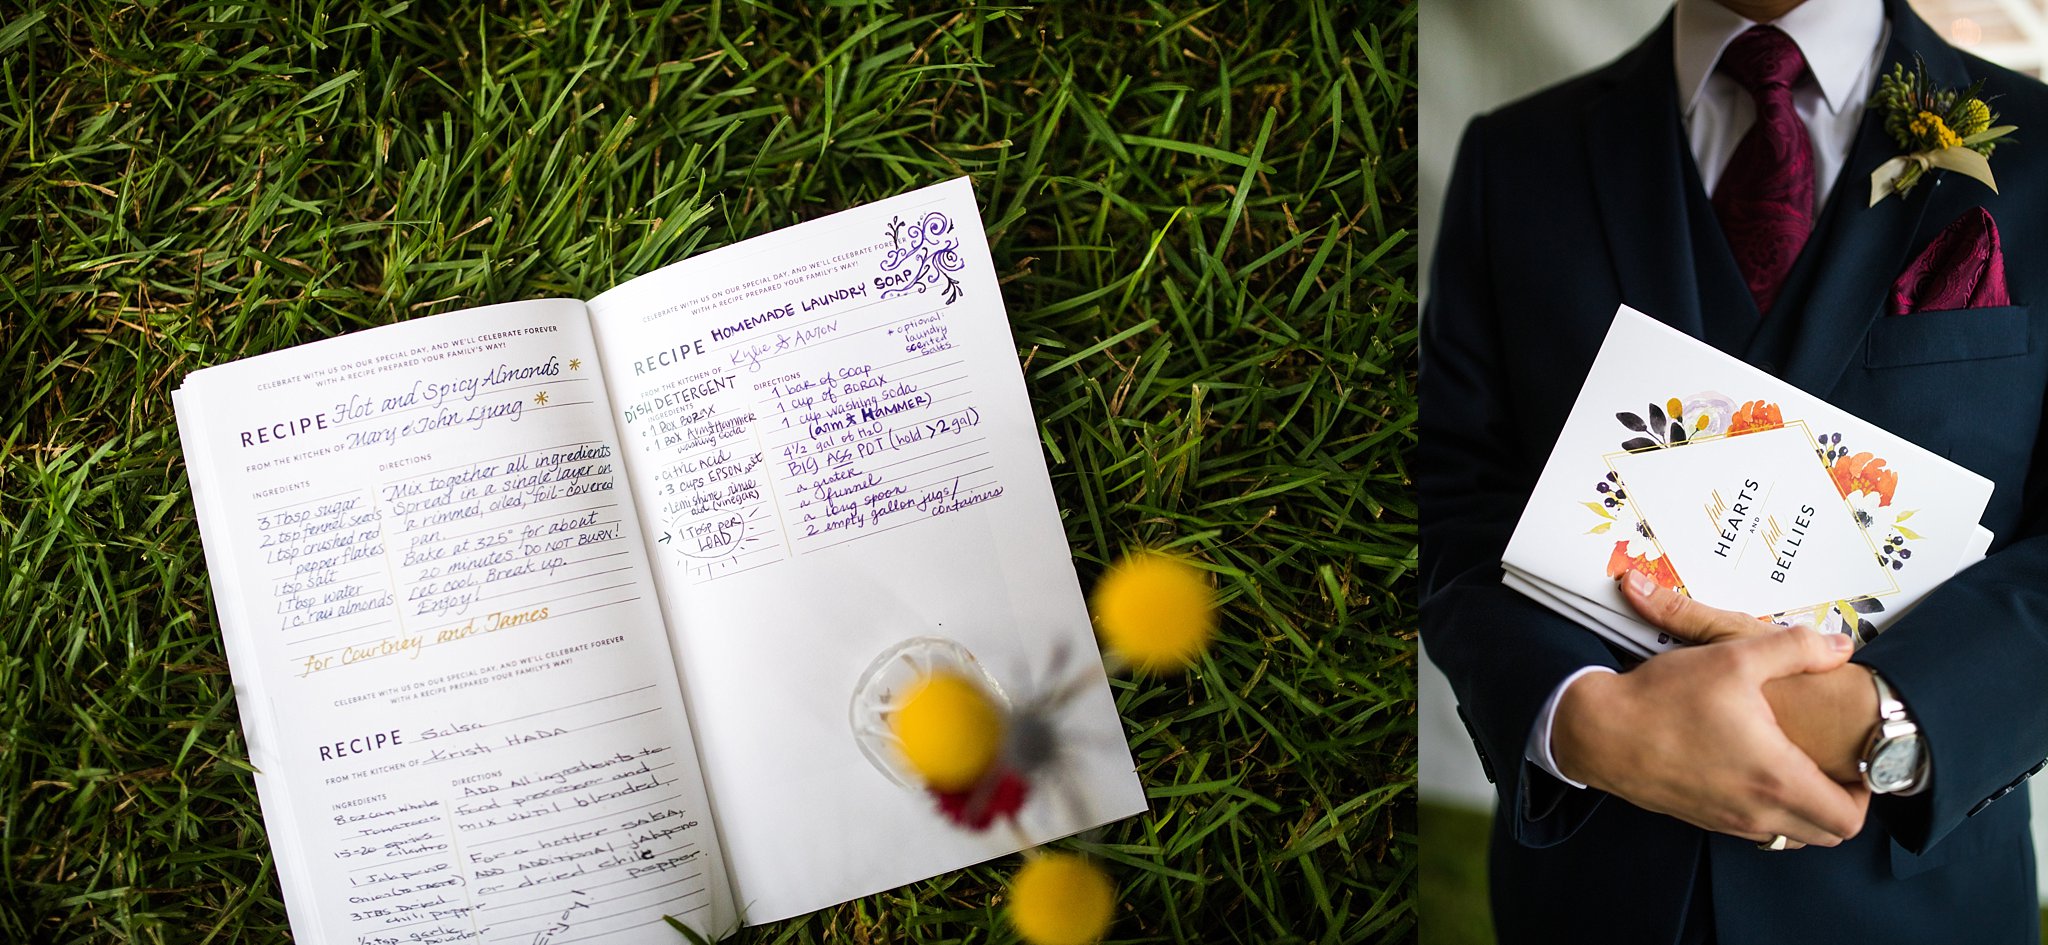 CELEBRATE WITH US ON OUR SPECIAL DAY, AND WE'LL CELEBRATE FOREVER
WITH A RECIPE PREPARED YOUR FAMILY'S WAY!
RECIPE Hot and Spicy Almonds
FROM THE KITCHEN OF Mary & John Ljung
INGREDIENTS
3 Tbsp sugar
2 tsp fennel seeds
1 tsp crushed red
pepper flakes
1 tsp salt
1 Tbsp water
1 c. raw almonds
DIRECTIONS
Mix together all ingredients
Spread in a single layer on
a rimmed, oiled, foil-covered
pan.
Bake at 325° for about
20 minutes. DO NOT BURN!
Let cool. Break up.
Enjoy!
for Courtney and James
CELEBRATE WITH US ON OUR SPECIAL DAY, AND WE'LL CELEBRATE FOREVER
WITH A RECIPE PREPARED YOUR FAMILY'S WAY!
RECIPE Salsa
FROM THE KITCHEN OF Kristi HADA
INGREDIENTS
8 oz can whole
Tomatoes
15-20 sprigs
cilantro
1 Jalapeno
onion (TO TASTE)
3 TBS Dried
chili pepper
1/2 tsp garlic
powder
DIRECTIONS
ADD All ingredients to
food processor and
mix until blended.
For a hotter salsa,
ADD ADDitional jalapeno
or dried chile
pepper.
Enjoy!
CELEBRATE WITH US ON OUR SPECIAL DAY, AND WE'LL CELEBRATE FOREVER
WITH A RECIPE PREPARED YOUR FAMILY'S WAY!
RECIPE HOMEMADE LAUNDRY SOAP
FROM THE KITCHEN OF Kylie & Aaron
* optional:
laundry
scented
salts
DISH DETERGENT
INGREDIENTS
• 1 BOX BORAX
• 1 BOX Arm & Hammer
washing soda
• citric ACID
• 3 cups EPSON salt
• Lemishine rinse
aid (vinegar)
→ 1 Tbsp per
LOAD
DIRECTIONS
1 bar of soap
1 cup of BORAX
1 cup washing soda
(arm & HAMMER)
4 1/2 gal of H2O
BIG ASS POT (hold >2 gal)
a grater
a funnel
a long spoon
2 empty gallon jugs/
containers
full
HEARTS
AND
full
BELLIES